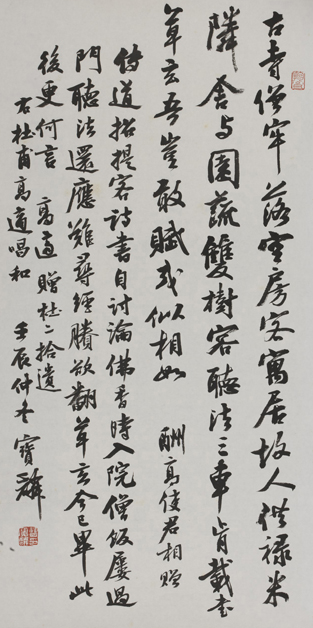 古寺僧牢落空房客寓居故人供祿米
隣舍与園蔬雙樹容聽法三車肯載書
草玄吾豈敢賦或似相如 酬高使君相贈
傳道招提客詩書自討論佛香時入院僧飯屢過
門聽法還應難尋經賸欲翻草玄今已畢此
後更何言 高適贈杜二拾遺
右杜甫高適唱和 壬辰仲冬 寶麟